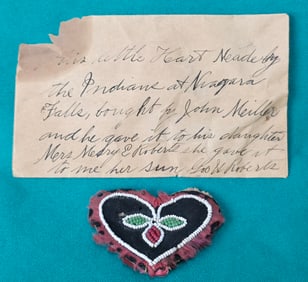 this little Hart Made by
the Indians at Niagara
Falls, bought by John Meiller
and he gave it to his daughter
Mers Medry E Roberts she gave it
to me her sun Geo W Roberts